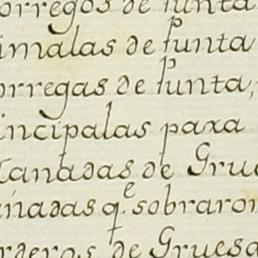 orregos de Punta
imalas de Punta
orregas de Punta,
incipalas paxa
tanadas de Grue
anadas q.e sobraron
rderos de Gruesa